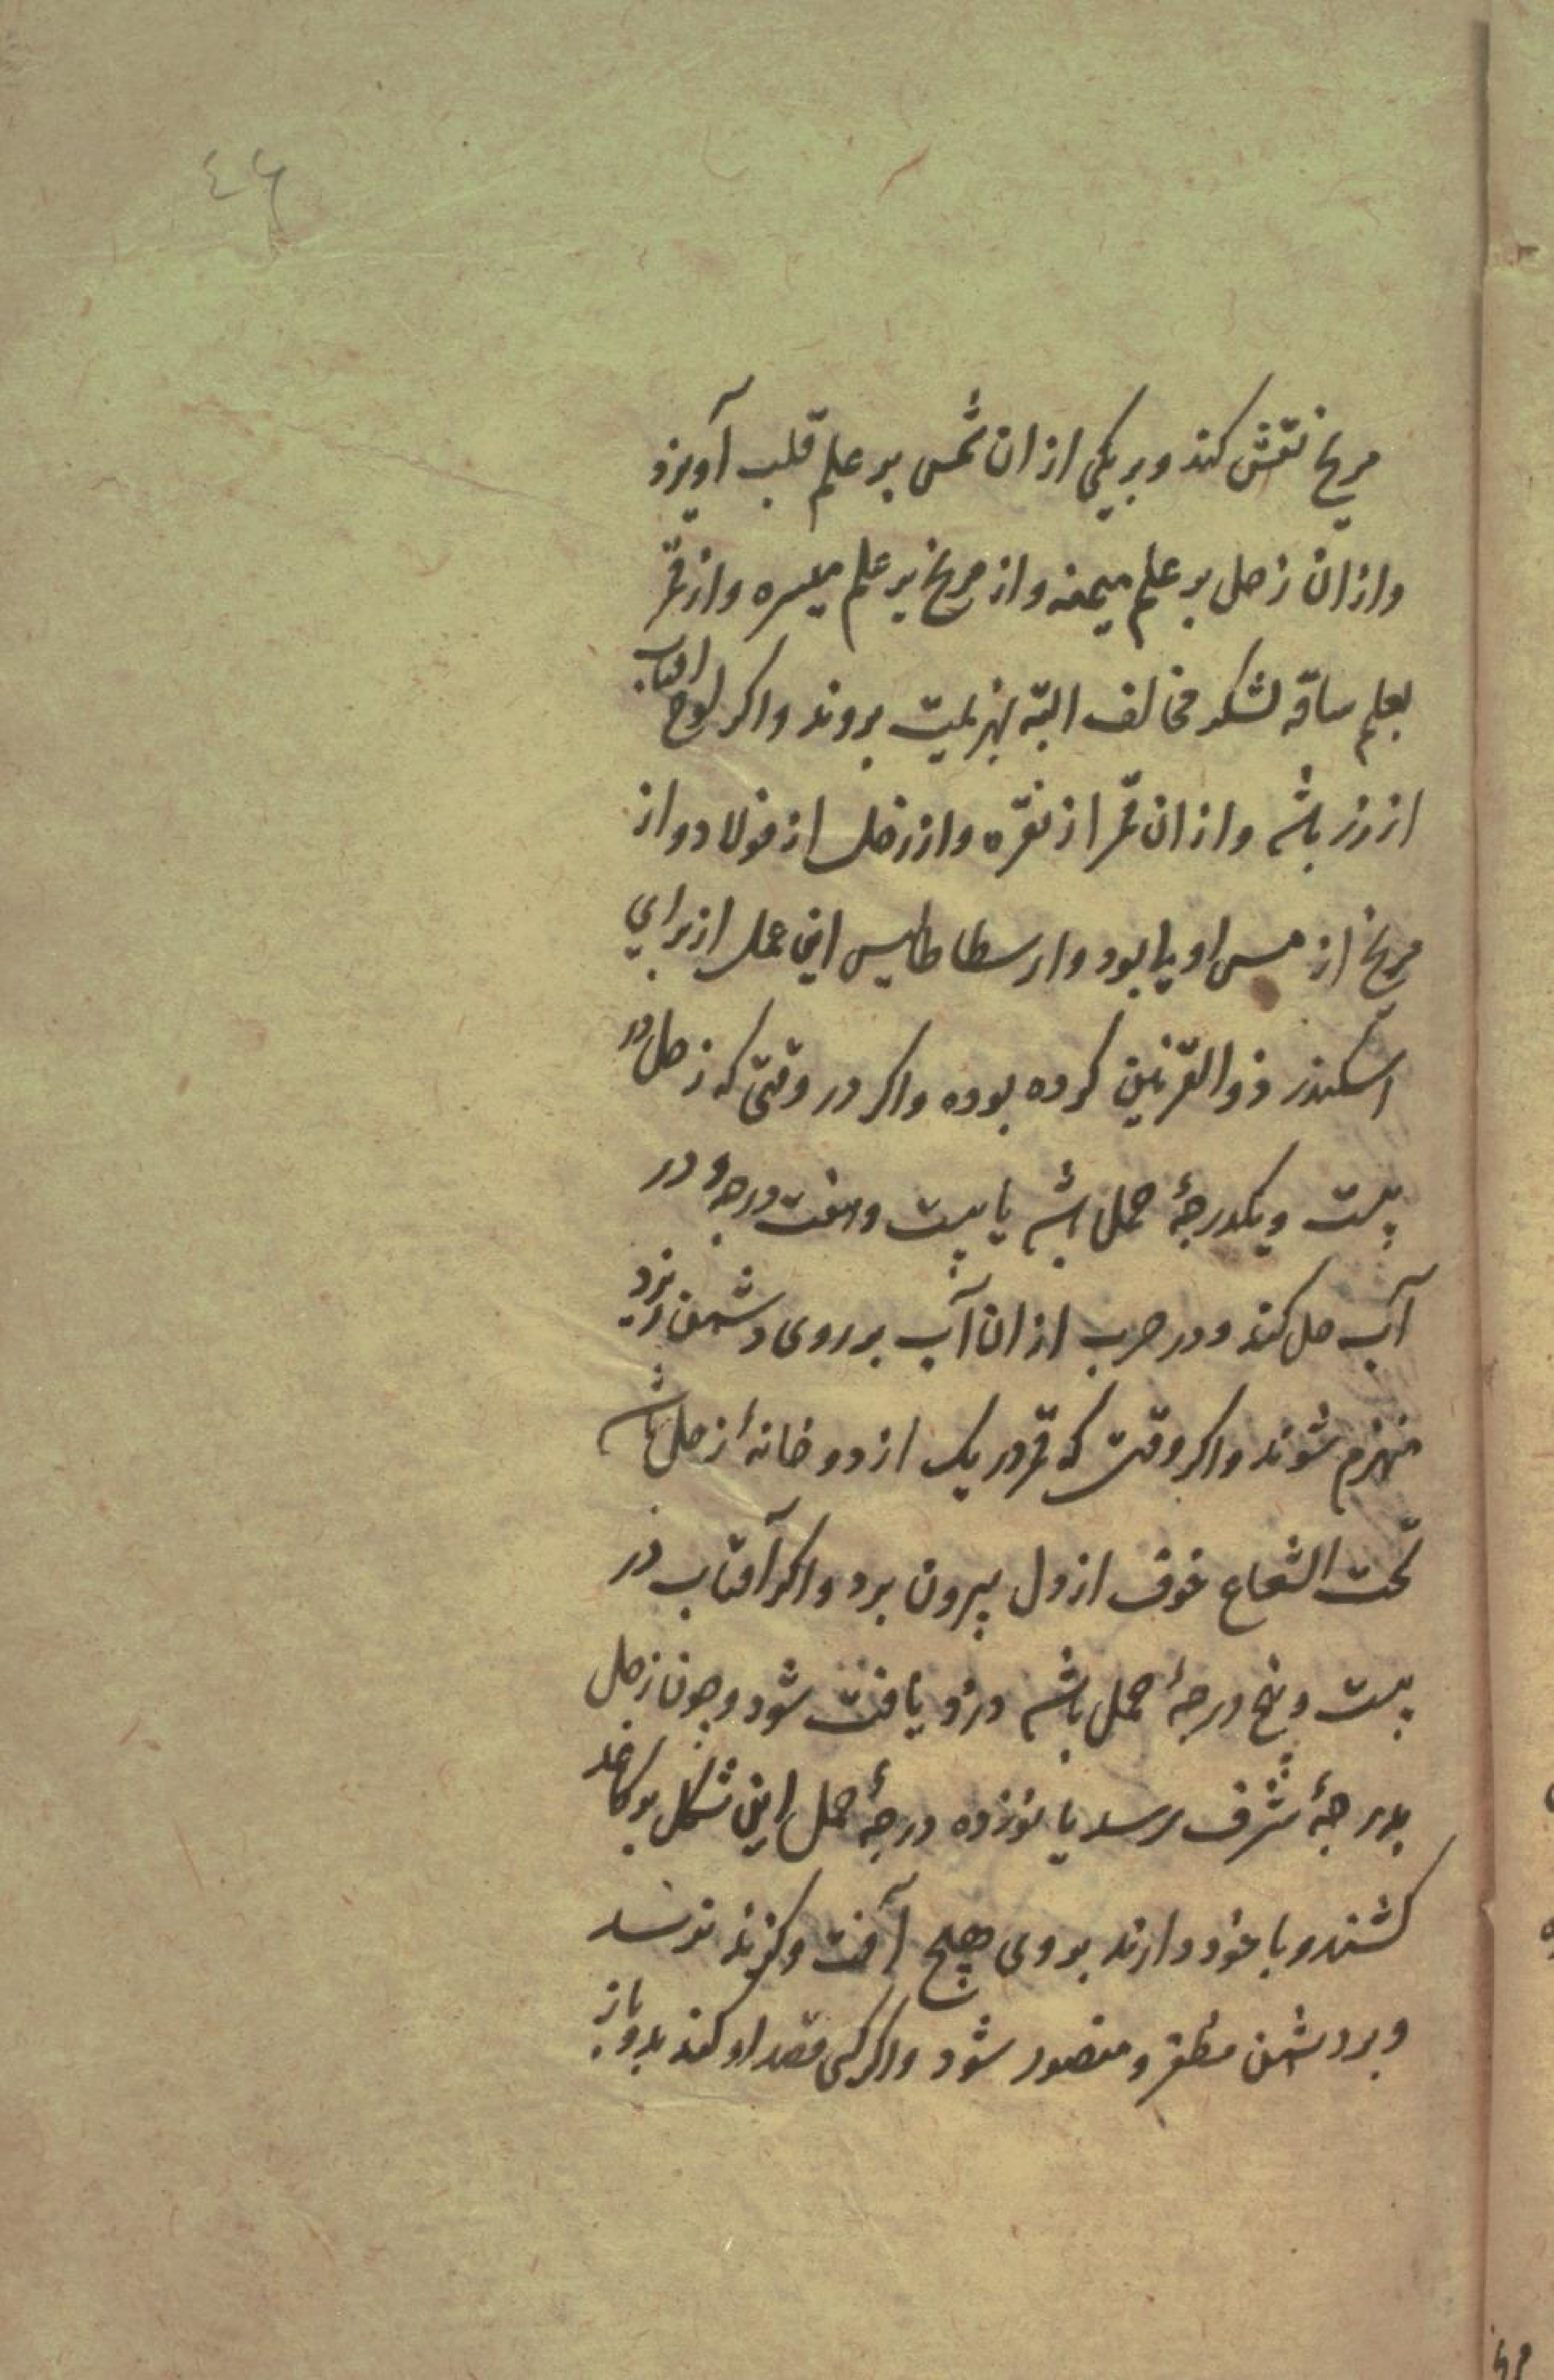 ٤٦
مریخ نقش کند و بر یکی ازان شمس بر علم قلب آویزد
وازان زحل بر علم میمنه واز مریخ بر علم میسره واز قمر
بعلم ساقه لشکر مخالف البته بهزیمت بروند واکر لوح افتاب
از زر باشد وازان قمر از نقره واز زحل از فولاد واز
مریخ از مس او یا بود وارسطاطالیس این عمل از برای
اسکندر ذوالقرنین کرده بوده واکر در وقتی که زحل در
بیست ویکدرجهٔ حمل باشد یا بیست وهفت درجه و در
آب حل کند ودر حرب ازان آب بر روی دشمن ریزد
منهزم شوند واکر وقتی که قمر در یک از دو خانهٔ زحل باشد
تحت الشعاع خوف از دل بیرون برد واکر آفتاب در
بیست وپنج درجهٔ حمل باشد دزد یافت شود وچون زحل
بدرجهٔ شرف رسد یا نوزده درجهٔ حمل این شکل بر کاغد
کشند وبا خود دارند بر وی هیچ آفت وکزند نرسد
وبر دشمن مظفر ومنصور شود واکر کسی قصد او کند بدو باز